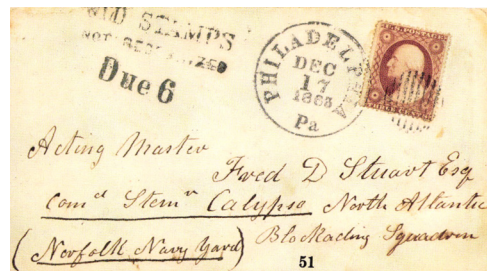 OLD STAMPS
NOT RECOGNIZED
Due 6
PHILADELPHIA
DEC
17
1863
Pa
Acting Master
Fred D Stuart Esq
Com'd Stem'r Calypso North Atlantic
Blockading Squadron
(Norfolk Navy Yard)
51